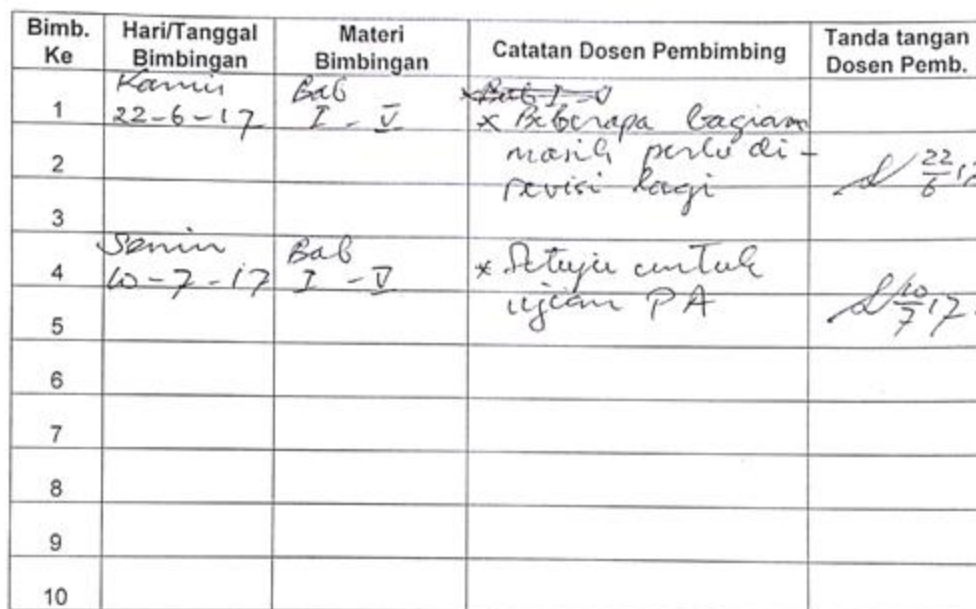 Bimb. Ke Hari/Tanggal Bimbingan Materi Bimbingan Catatan Dosen Pembimbing Tanda tangan Dosen Pemb.
Kamis Bab Bab I - V
1 22-6-17 I - V * Beberapa bagian
2 masih perlu di- 22/6 17
revisi lagi
3
Senin Bab
4 10-7-17 I - V * Setuju untuk
ujian PA 10/7 17
5
6
7
8
9
10